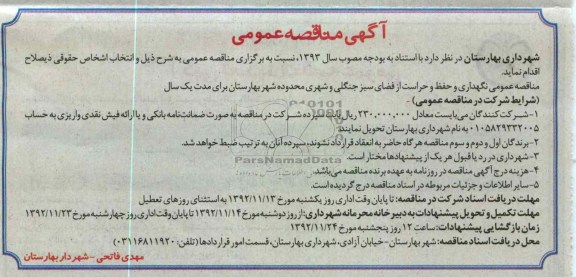 آگهی مناقصه عمومی
شهرداری بهارستان در نظر دارد با استناد به بودجه مصوب سال ۱۳۹۳، نسبت به برگزاری مناقصه عمومی به شرح ذیل و انتخاب اشخاص حقوقی ذیصلاح
اقدام نماید.
مناقصه عمومی نگهداری و حفظ و حراست از فضای سبز جنگلی و شهری محدوده شهر بهارستان برای مدت یک سال
(شرایط شرکت در مناقصه عمومی)
۱-شرکت کنندگان می‌بایست معادل ۲۳۰،۰۰۰،۰۰۰ ریال سپرده شرکت در مناقصه به صورت ضمانت‌نامه بانکی و یا ارائه فیش نقدی واریزی به حساب
۰۱۰۵۸۲۹۳۳۲۰۰۵ به نام شهرداری بهارستان تحویل نمایند.
۲-برندگان اول و دوم و سوم مناقصه هرگاه حاضر به انعقاد قرارداد نشوند، سپرده آنان به ترتیب ضبط خواهد شد.
۳-شهرداری در رد یا قبول هر یک از پیشنهادها مختار است.
۴-هزینه درج آگهی مناقصه در روزنامه به عهده برنده مناقصه می‌باشد.
۵-سایر اطلاعات و جزئیات مربوطه در اسناد مناقصه درج گردیده است.
مهلت دریافت اسناد شرکت در مناقصه: تا پایان وقت اداری روز یکشنبه مورخ ۱۳۹۲/۱۱/۱۳ به استثنای روزهای تعطیل
مهلت تکمیل و تحویل پیشنهادات به دبیرخانه محرمانه شهرداری: از روز دوشنبه مورخ ۱۳۹۲/۱۱/۱۴ تا پایان وقت اداری روز چهارشنبه مورخ ۱۳۹۲/۱۱/۲۳
زمان بازگشایی پیشنهادات: ساعت ۱۲ روز پنجشنبه مورخ ۱۳۹۲/۱۱/۲۴
محل دریافت اسناد مناقصه: شهر بهارستان-خیابان آزادی، شهرداری بهارستان، قسمت امور قراردادها (تلفن: ۰۳۱۱۶۸۱۱۹۲۰)
مهدی فاتحی - شهردار بهارستان
ParsNamadData